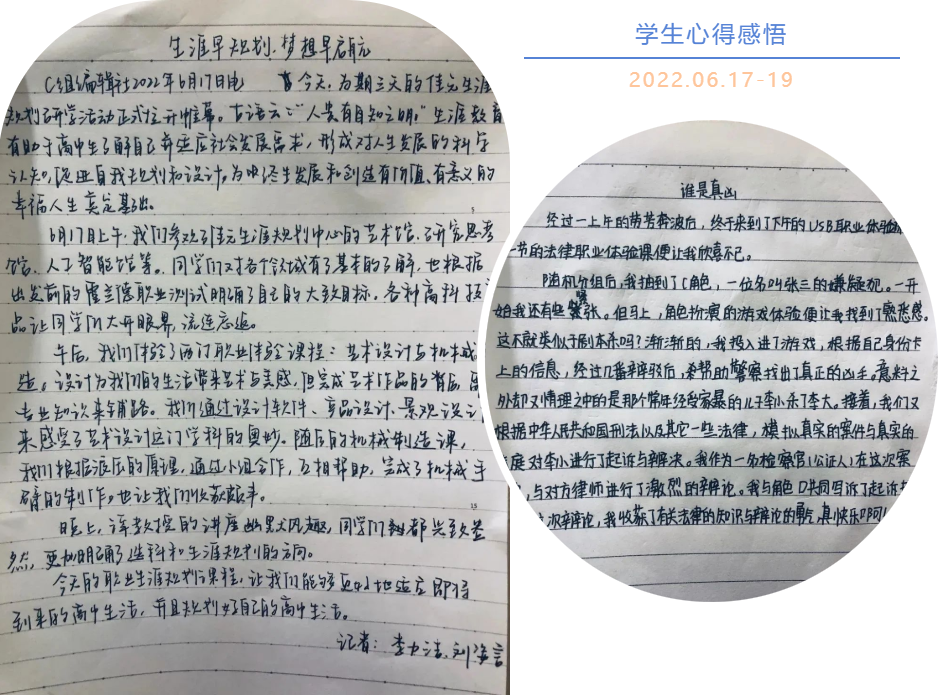 学生心得感悟
2022.06.17-19
生涯早规划,梦想早启航
C组编辑社2022年6月17日电 今天,为期三天的佳元生涯
规划研学活动正式拉开帷幕。古语云:“人贵有自知之明。”生涯教育
有助于高中生了解自己并适应社会发展需求,形成对人生发展的科学
认知,促进自我规划和设计,为终生发展和创造有价值、有意义的
幸福人生奠定基础。
6月17日上午,我们参观了佳元生涯规划中心的艺术馆、研究思考
馆、人工智能馆等。同学们对各个领域有了基本的了解,也根据
出发前的霍兰德职业测试明确了自己的大致目标。各种高科技
品让同学们大开眼界,流连忘返。
午后,我们体验了两门职业体验课程:艺术设计与机械
造。设计为我们的生活带来艺术与美感,但完成艺术作品的背后
专业知识来铺路。我们通过设计软件、产品设计、景观设计
来感受了艺术设计这门学科的奥妙。随后的机械制造课,
我们根据液压的原理,通过小组合作,互相帮助,完成了机械手
臂的制作,也让我们收获颇丰。
晚上,教授的讲座幽默风趣,同学们都兴致盎
然,更加明确了选科和生涯规划的方向。
今天的职业生涯规划课程,让我们能够更好地适应即将
到来的高中生活,并且规划好自己的高中生活。
记者:李
谁是真凶
经过一上午的劳苦奔波后,终于来到了下午的USB职业体验
一节的法律职业体验课便让我欣喜不已。
随机分组后,我抽到了C角色,一位名叫张三的嫌疑犯。一开
始我还有些紧张。但马上,角色扮演的游戏体验便让我找到了熟悉感。
这不就类似于剧本杀吗?渐渐的,我投入进了游戏,根据自己身份卡
上的信息,经过几番辩驳后,帮助警察找出了真正的凶手。意料之
外却又情理之中的是那个常年经受家暴的儿子李小杀了李大。接着,我们又
根据中华人民共和国刑法以及其它一些法律,模拟真实的案件与真实的
庭对李小进行了起诉与辩决。我作为一名检察官(公证人)在这次案
,与对方律师进行了激烈的辩论。我与角色D共同写诉了起诉
次辩论,我收获了有关法律的知识与辩论的,真快乐啊